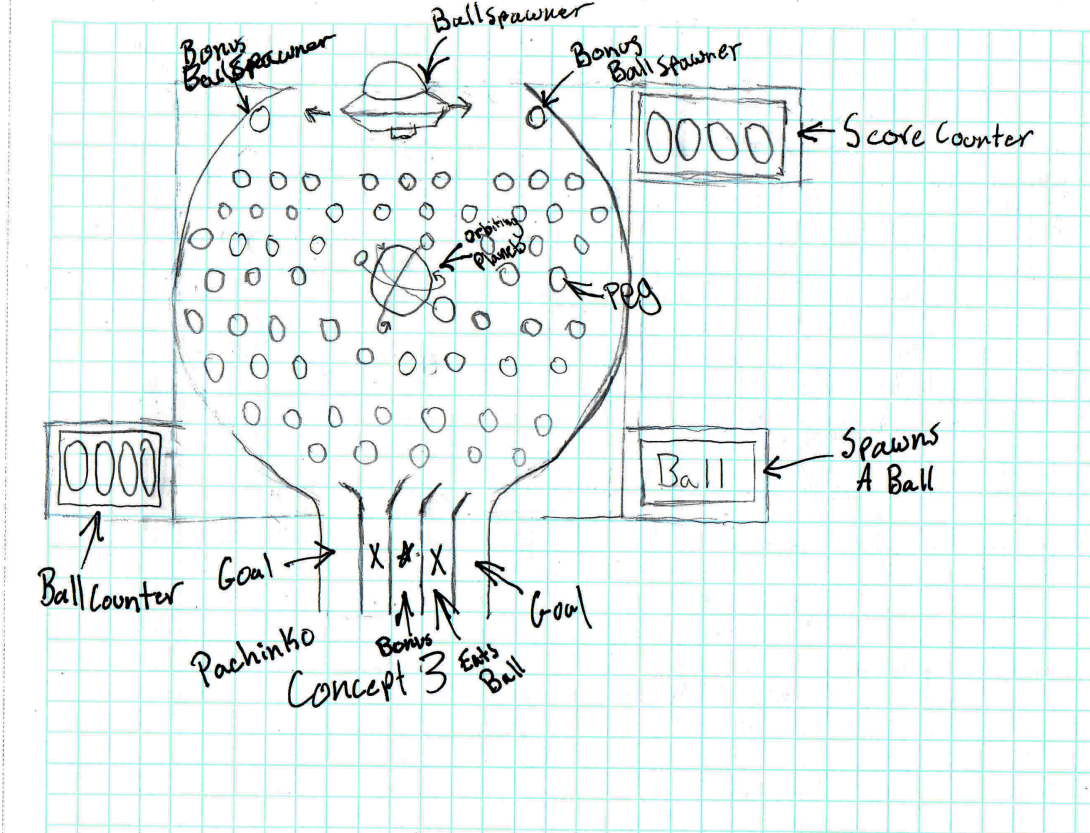 Ball spawner
Bonus
Ball Spawner
Bonus
Ball spawner
0000
Score Counter
orbiting
Planets
Peg
0000
Ball
Spawns
A Ball
Ball Counter
Goal
X
X
Goal
Bonus
Eats
Ball
Pachinko
Concept 3